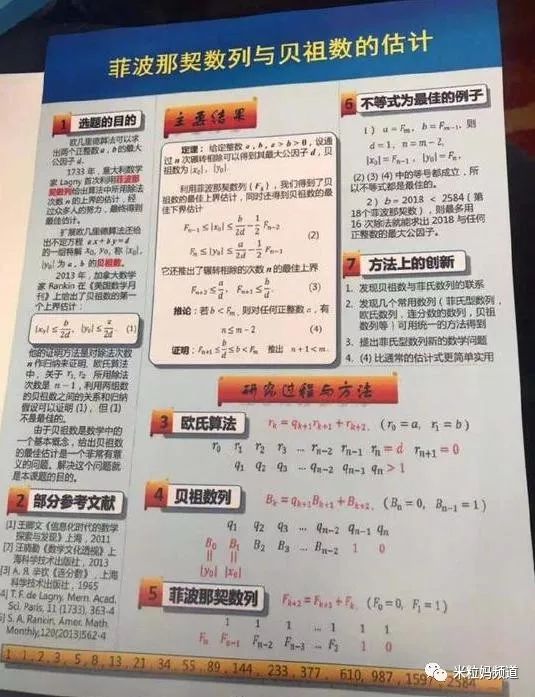 菲波那契数列与贝祖数的估计
1 选题的目的
欧几里德算法可以求
出两个正整数 a, b 的最大
公因子 d.
1733 年，意大利数学
家 Lagny 首次利用菲波那
契数列给出算法中所用除法
次数 n 的上界的估计，经
过众多人的努力，最终得到
最佳估计。
扩展欧几里德算法还给
出不定方程 ax+by=d
的一组特解 x₀, y₀, 称 |x₀|,
|y₀| 为 a, b 的贝祖数。
2013 年，加拿大数学
家 Rankin 在《美国数学月
刊》上给出了贝祖数的第一
个上界估计：
|x₀| ≤ b/2d, |y₀| ≤ a/2d. (1)
他的证明方法是对除法次数
n 作归纳来证明. 欧氏算法
中，关于 r₁, r₂ 所用除法
次数是 n − 1，利用两组数
的贝祖数之间的关系和归纳
假设可以证明 (1)，但 (1)
不是最佳的。
由于贝祖数是数学中的
一个基本概念，给出贝祖数
的最佳估计是一个非常有意
义的问题。解决这个问题就
是本课题的目的。
2 部分参考文献
[1] 王卿文《信息化时代的数学
探索与发现》上海，2011
[2] 汪晓勤《数学文化透视》上
海科学技术出版社，2013
[3] A. Я. 辛钦《连分数》，上海
科学技术出版社，1965
4] T. F. de Lagny. Mem. Acad.
Sci. Paris, 11 (1733), 363-4
5] S. A. Rankin, Amer. Math.
Monthly,120(2013)562-4
主要结果
定理：给定整数 a, b, a > b > 0，设通
过 n 次辗转相除可以得到其最大公因子 d，贝
祖数为 |x₀|, |y₀|.
利用菲波那契数列 {Fₖ}，我们得到了贝
祖数的最佳上界估计，同时还得到贝祖数的最
佳下界估计
Fₙ₋₁ ≤ |x₀| ≤ b/2d − 1/2 Fₙ₋₂
(2)
Fₙ ≤ |y₀| ≤ a/2d − 1/2 Fₙ₋₁
它还推出了辗转相除的次数 n 的最佳上界
Fₙ₊₂ ≤ a/d, Fₙ₊₁ ≤ b/d. (3)
推论：若 b < Fₘ，则对任何正整数 a，有
n ≤ m − 2 (4)
证明：Fₙ₊₁ ≤ b/d ≤ b < Fₘ 推出 n + 1 < m.
6 不等式为最佳的例子
1） a = Fₘ, b = Fₘ₋₁, 则
d = 1, n = m − 2,
(2) (3) (4) 中的等号都成立，所
以不等式都是最佳的。
2）b = 2018 < 2584（第
18个菲波那契数），则最多用
16 次除法就能求出 2018 与任何
正整数的最大公因子。
7 方法上的创新
1. 发现贝祖数与菲氏数列的联系
2. 发现几个常用数列（菲氏型数列，
欧氏数列，连分数的数列，贝祖
数列等）可用统一的方法得到
3. 提出菲氏型数列新的数学问题
4. (4) 比通常的估计式更简单实用
研究过程与方法
3 欧氏算法 rₖ = qₖ₊₁rₖ₊₁ + rₖ₊₂, (r₀ = a, r₁ = b)
r₀ r₁ r₂ r₃ ... rₙ₋₂ rₙ₋₁ rₙ = d rₙ₊₁ = 0
q₁ q₂ q₃ ... qₙ₋₂ qₙ₋₁ qₙ > 1
4 贝祖数列 Bₖ = qₖ₊₁Bₖ₊₁ + Bₖ₊₂, (Bₙ = 0, Bₙ₋₁ = 1)
q₁ q₂ q₃ ... qₙ₋₂ qₙ₋₁ qₙ
B₀ B₁ B₂ B₃ ... Bₙ₋₂ 1 0
|| ||
|y₀| |x₀|
5 菲波那契数列 Fₖ₊₂ = Fₖ₊₁ + Fₖ, (F₀ = 0, F₁ = 1)
1 1 1 ... 1 1 1
Fₙ Fₙ₋₁ Fₙ₋₂ Fₙ₋₃ ... F₂ 1 0
1, 1, 2, 3, 5, 8, 13, 21, 34, 55, 89, 144, 233, 377, 610, 987, 1597, 2584
米粒妈频道